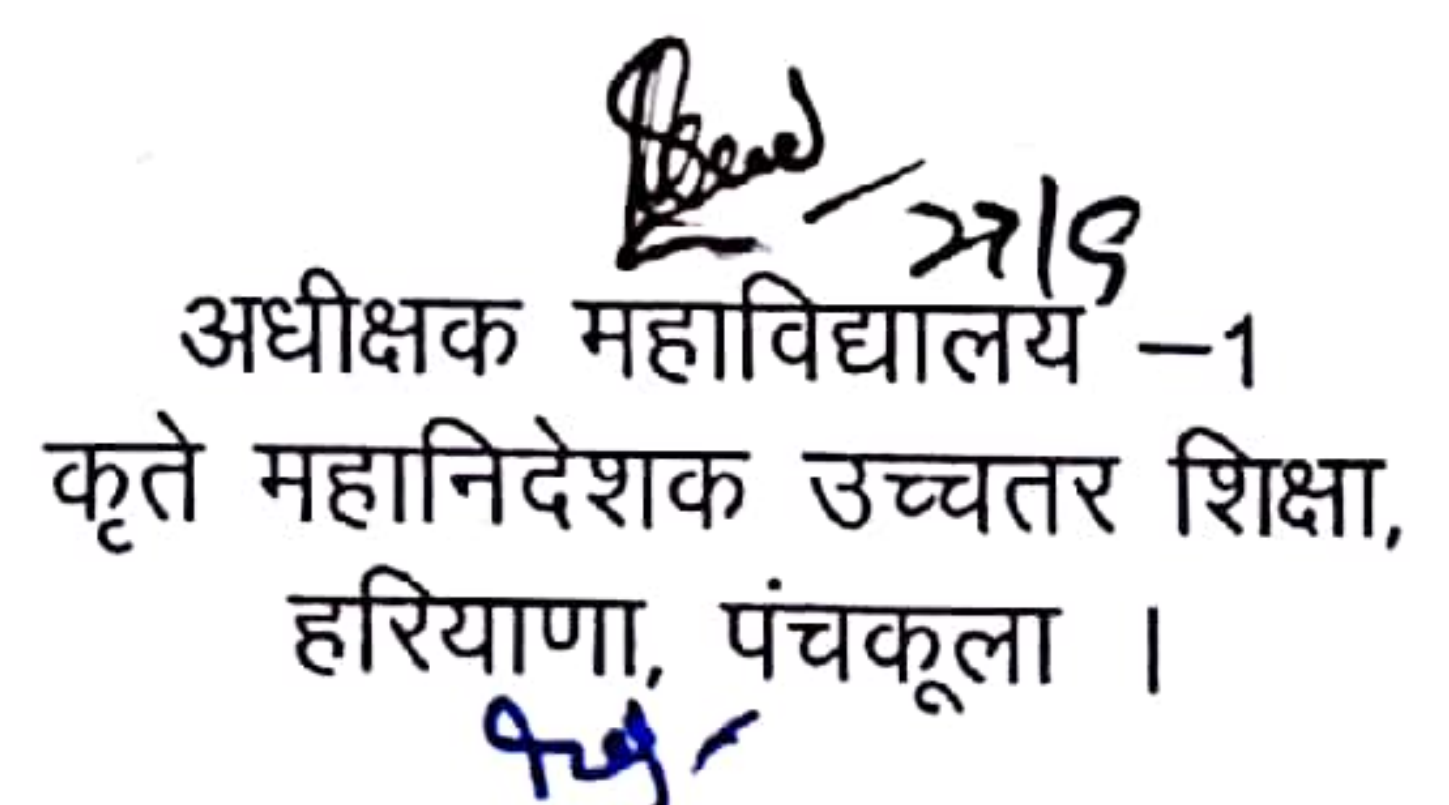 अधीक्षक महाविद्यालय –1
कृते महानिदेशक उच्चतर शिक्षा,
हरियाणा, पंचकूला ।